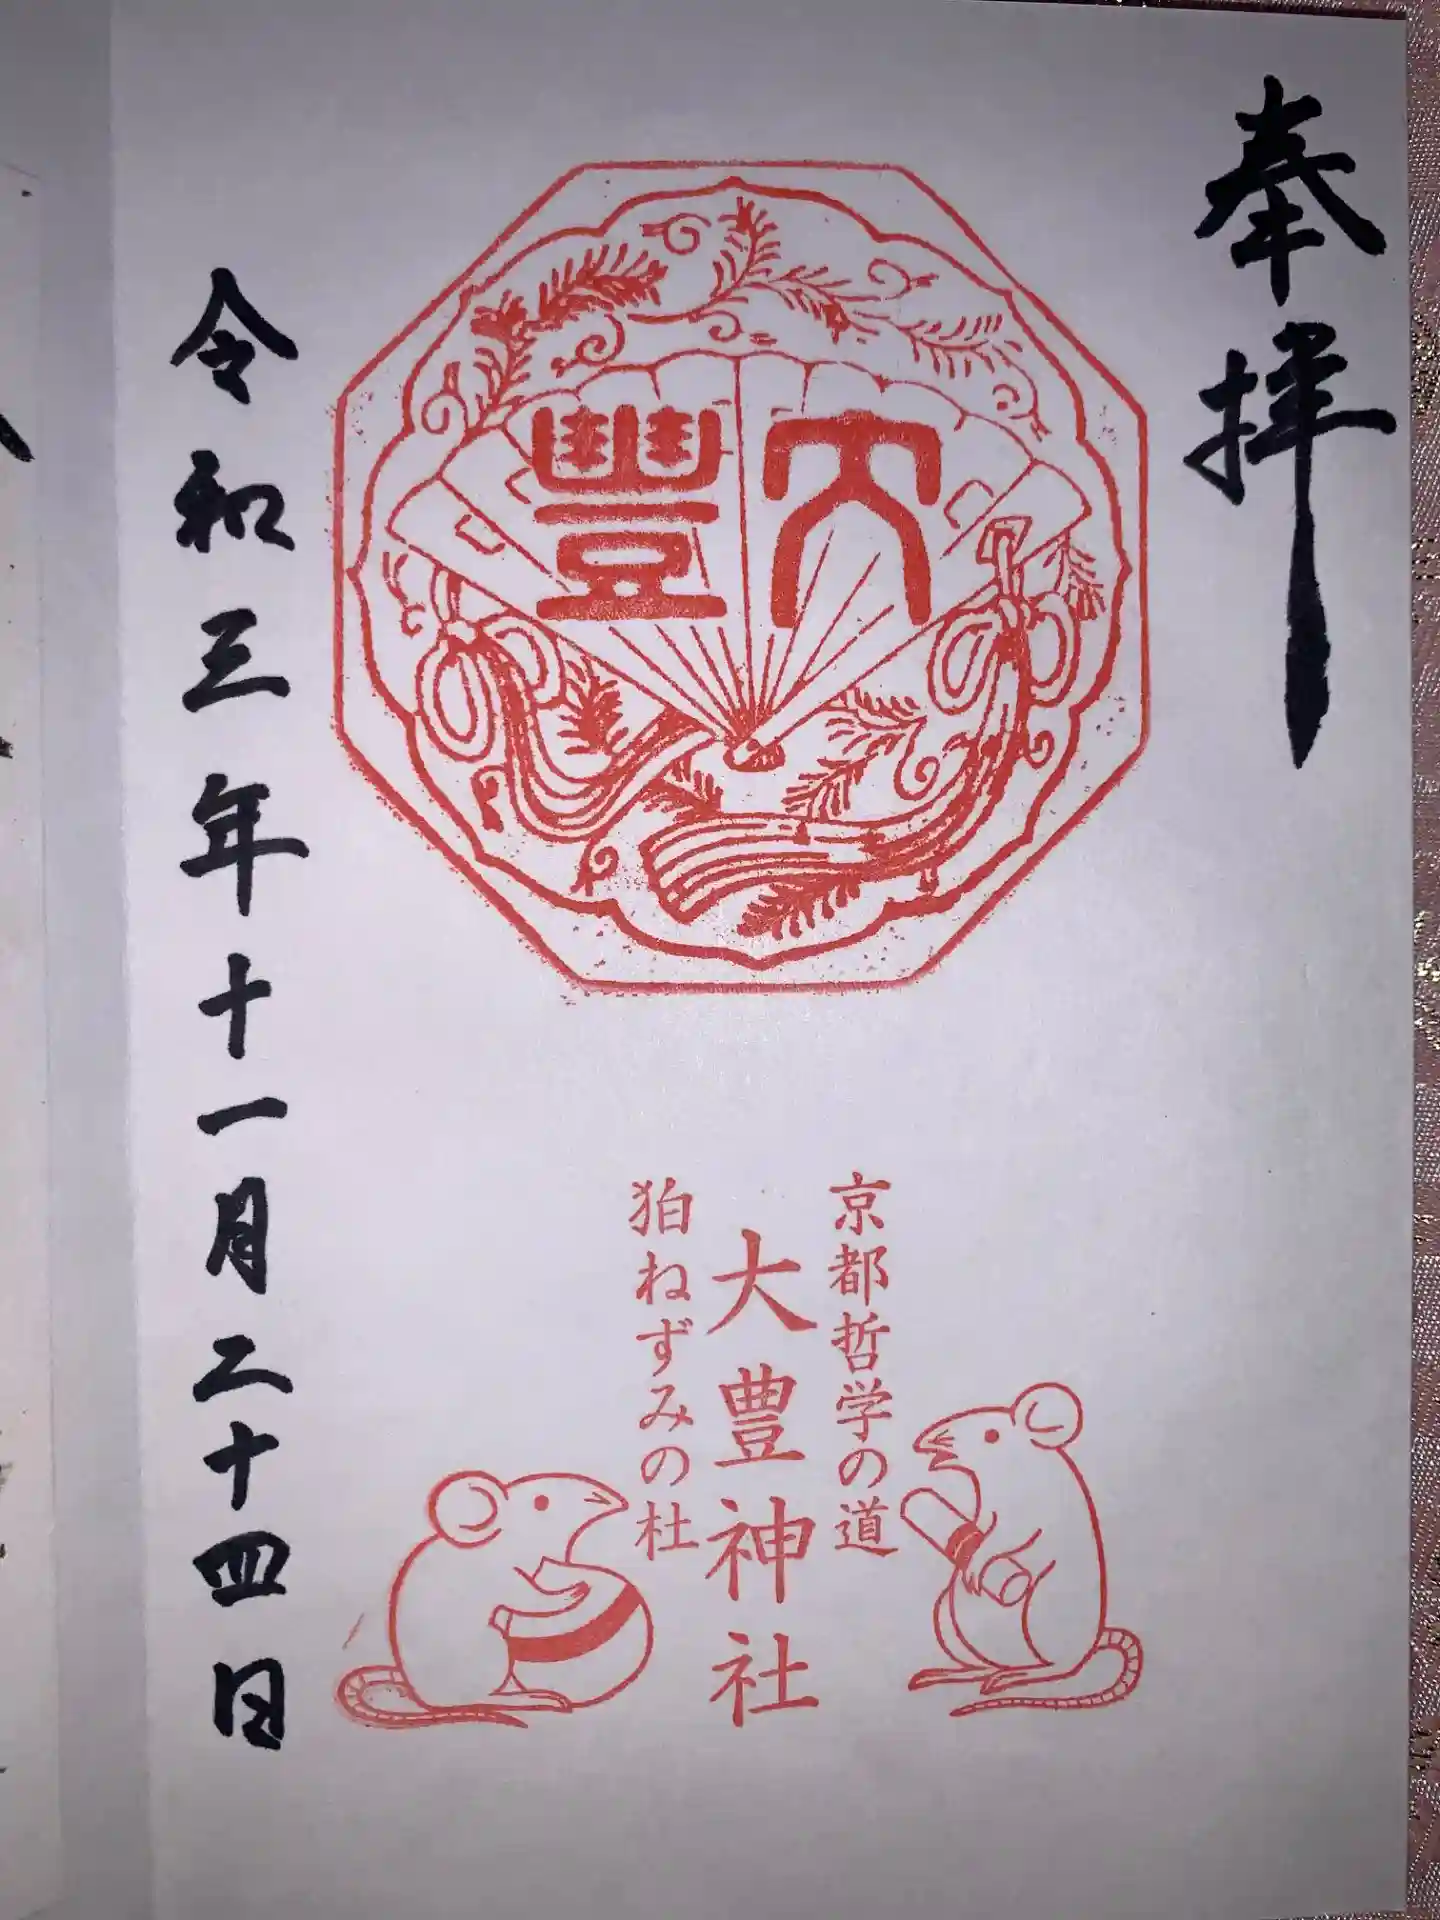 奉拝
大豊
京都哲学の道
大豊神社
狛ねずみの杜
令和三年十一月二十四日